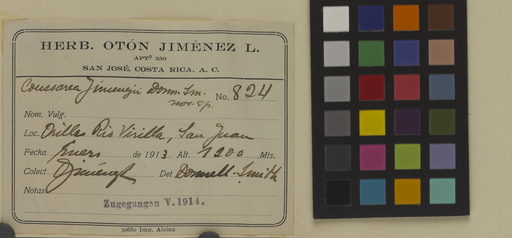 HERB. OTÓN JIMÉNEZ L.
APTº 350
SAN JOSÉ, COSTA RICA, A. C.
Coussarea Jimenezii Donn. Sm. No. 824
nov. sp.
Nom. Vulg.
Loc. Orillas Rio Virilla, San Juan
Fecha Enero de 1913 Alt. 1200 Mts.
Colect. O Jiménez Det. Donnell-Smith
Notas
Zugegangen V. 1914.
30680 Imp. Alsina